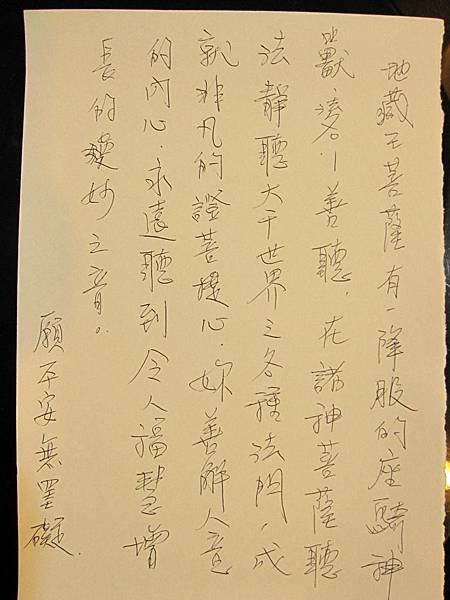 地藏王菩薩有一降服的座騎神
獸,善聽,在諸神菩薩聽
法靜聽大千世界之各種法門,成
就非凡的證菩提心.妳善解人意
的內心.永遠聽到令人福慧增
長的妙之音。
願平安無罣礙.